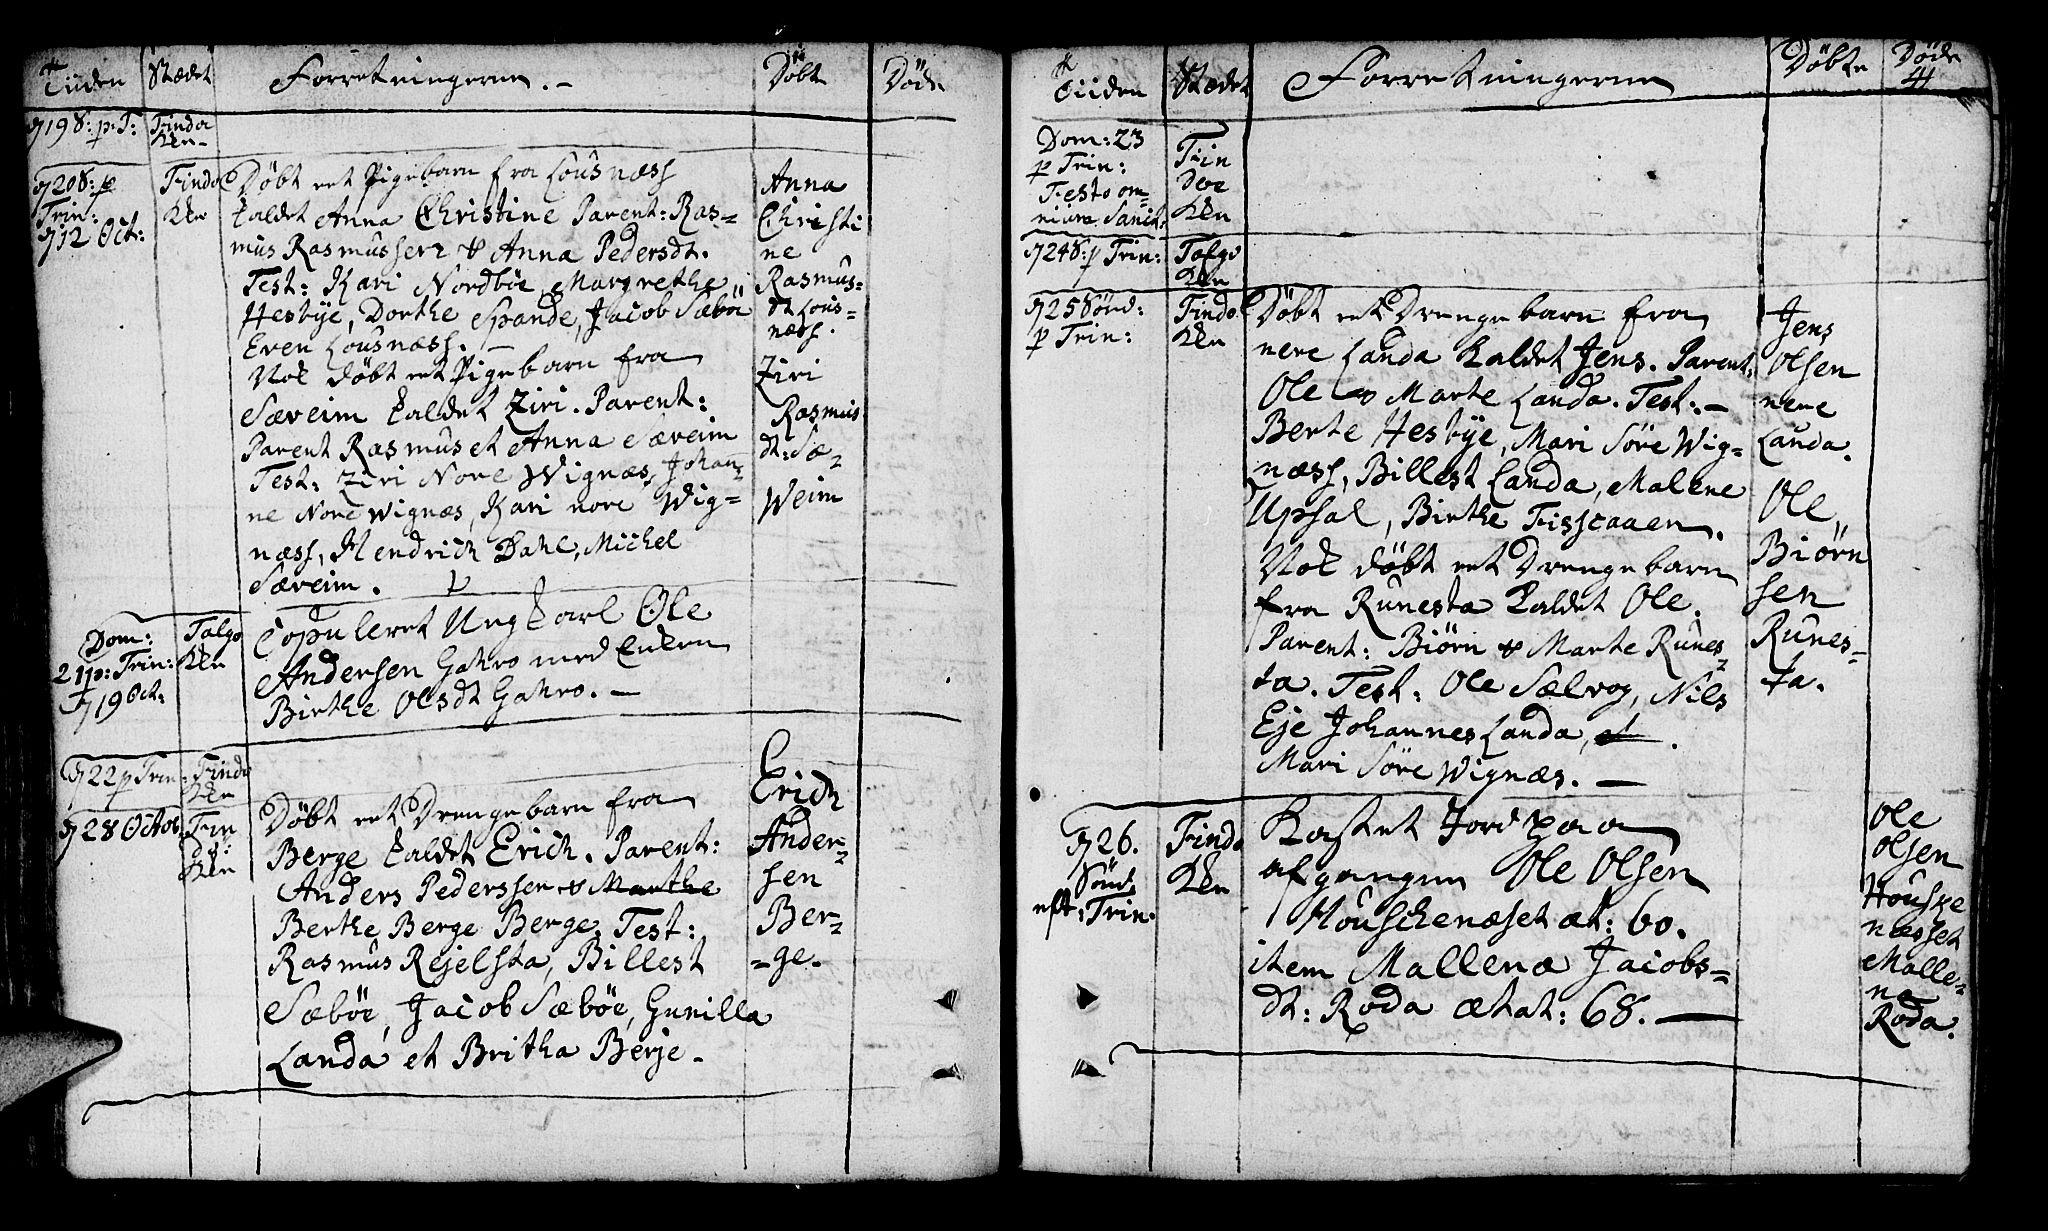 Tiiden Stædet Forretningerne. - Döbt Döde
D 19 S: p: T: Findø Kken
D 20 S: p Trin: D 12 Oct:
Findø Kken
Döbt eet Pigebarn fra Lousnæss
kaldet Anna Christine Parent: Ras=
mus Rasmussen & Anna Pedersdt.
Test: Kari Nordböe, Margrethe
Hesbÿe, Dorthe Spande, Jacob Sæböe
Even Lousnæss. -
Anna
Christi
ne
Rasmus=
dt Lous=
næss.
Nok döbt eet Pigebarn fra
Sæveim kaldet Ziri. Parent:
Parent Rasmus et Anna Sæveim
Test: Ziri Nore Wignæs, Johan=
ne Nore Wignæs, Kari nore Wig=
næss, Hendrich Dahl, Michel
Sæveim.
Ziri
Rasmus
dt: Sæ=
Weim
Dom:
21 p: Trin:
D 19 Oct:
Talgø
Kken
Copuleret Ungkarl Ole
Andersen Gahro med Enken
Birthe Olsdt Gahro. -
D 22 p Trin: Findø
Kken
D 28 Octob:
Fin
dø:
Kken
Döbt eet Drengebarn fra
Berge kaldet Erich. Parent:
Anders Pederssen & Marthe
Berthe Berge Berge. Test:
Rasmus Rejelsta, Billest
Sæböe, Jacob Sæböe, Gunilla
Landa et Britha Berje -
Erich
Ander=
sen
Ber=
=ge.
Tiiden Stædet Forretningerne Döbte Döde
41
Dom: 23
p Trin:
Festo om=
nium Sanct:
Fin
döe
Kken
D 24 S: p Trin: Talgø
Kken
D 25 Sönd:
p Trin:
Findø
Kken
Döbt eet Drengebarn fra
nere Landa kaldet Jens. Parent:
Ole & Marte Landa. Test: -
Berte Hesbÿe, Mari Söre Wig=
næss, Billest Landa, Malene
Upsal, Birthe Fisscaaen.
Jens
Olsen
nere
Landa.
Nok döbt eet Drengebarn
fra Runesta kaldet Ole.
Parent: Biørn & Marte Runes=
ta. Test: Ole Sælvog, Nils
Eje Johannes Landa, et.
Mari Söre Wignæs. -
Ole
Biørn
sen
Runes=
ta.
D 26.
Sönd:
eft: Trin:
Findø
Kken
Kastet Jord paa
afgangne Ole Olsen
Houschenæset æt: 60.
item Mallena Jacobs=
dt: Roda ætat: 68. -
Ole
Olsen
Houske
næsset
Malle=
na
Roda.